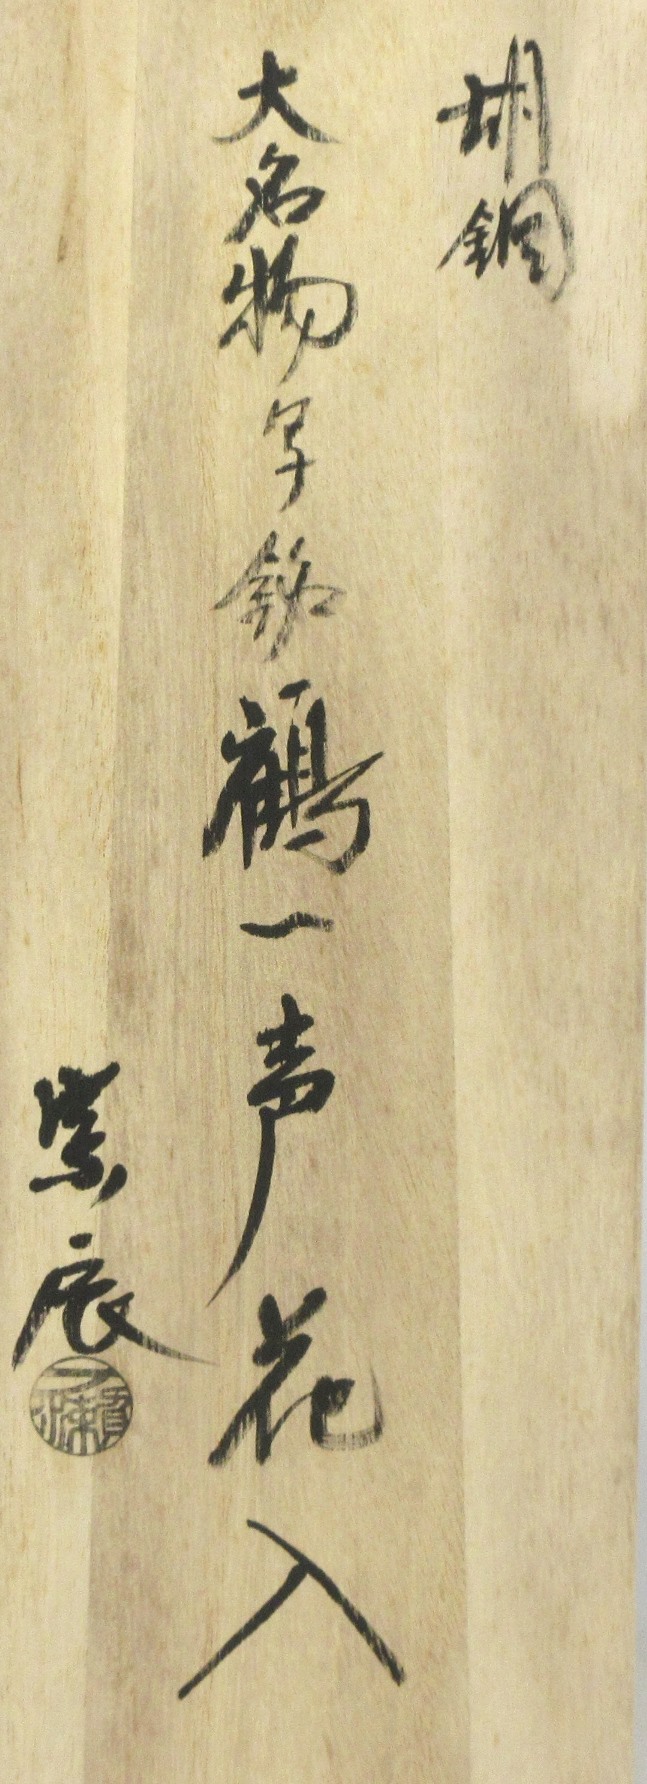 胡銅
大名物写銘鶴一声花入
紫辰